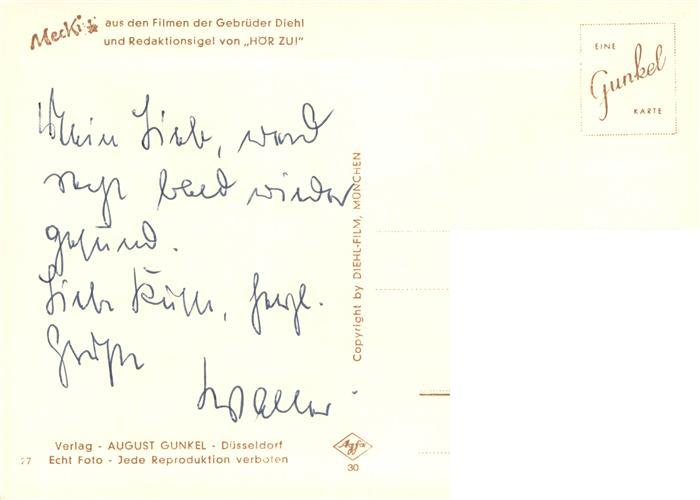 Mecki aus den Filmen der Gebrüder Diehl
und Redaktionsigel von „HÖR ZU!"
EINE
Gunkel
KARTE
Mein Lieb, werd
recht bald wieder
gesund.
Liebe Küsse, herzl.
Grüße
Copyright by DIEHL-FILM, MÜNCHEN
Verlag - AUGUST GUNKEL - Düsseldorf
77 Echt Foto - Jede Reproduktion verboten
Agfa
30